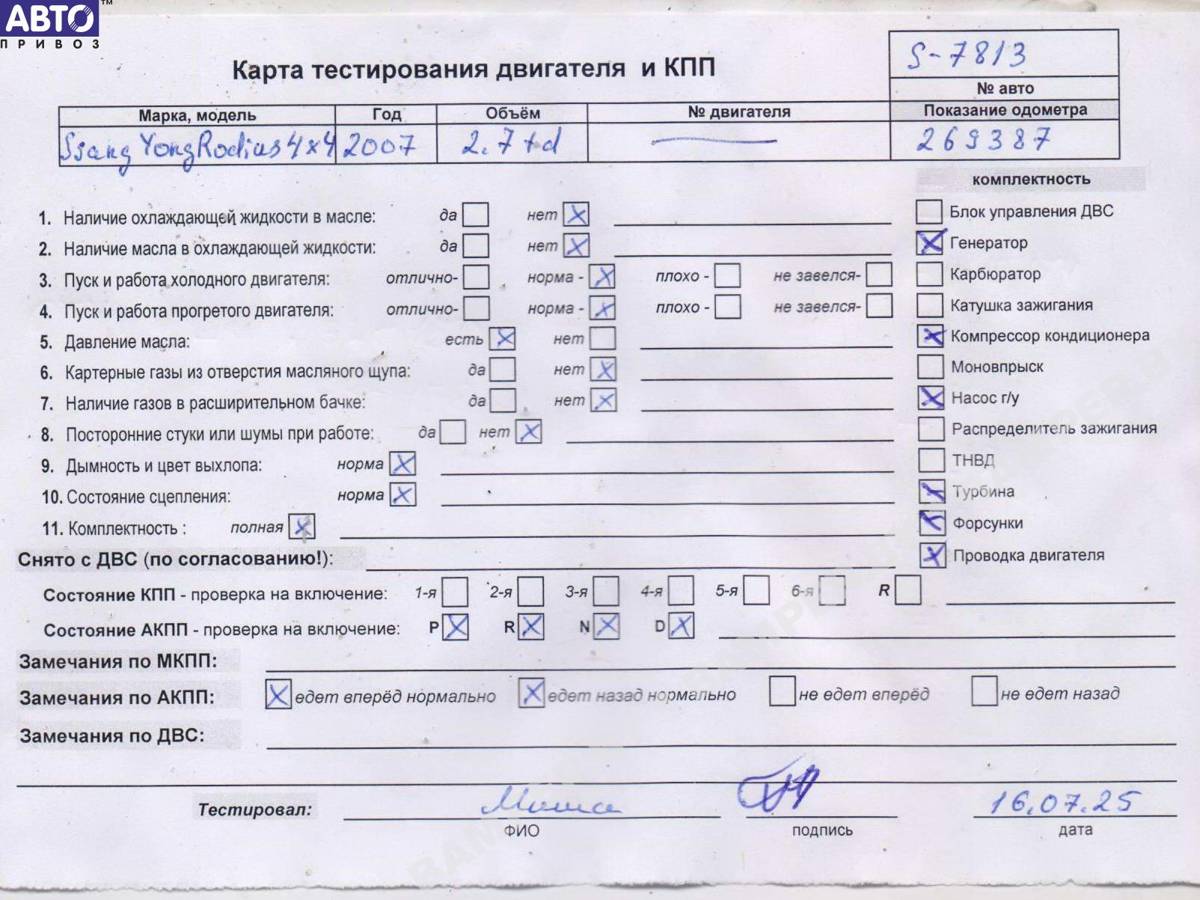 АВТО™
ПРИВОЗ
Карта тестирования двигателя и КПП
S-7813
№ авто
Марка, модель Год Объём № двигателя Показание одометра
SsangYongRodius4x4 2007 2.7td 269387
комплектность
1. Наличие охлаждающей жидкости в масле: да нет
Блок управления ДВС
2. Наличие масла в охлаждающей жидкости: да нет
Генератор
3. Пуск и работа холодного двигателя: отлично- норма - плохо - не завелся-
Карбюратор
4. Пуск и работа прогретого двигателя: отлично- норма - плохо - не завелся-
Катушка зажигания
5. Давление масла: есть нет
Компрессор кондиционера
6. Картерные газы из отверстия масляного щупа: да нет
Моновпрыск
7. Наличие газов в расширительном бачке: да нет
Насос г/у
8. Посторонние стуки или шумы при работе: да нет
Распределитель зажигания
9. Дымность и цвет выхлопа: норма
ТНВД
10. Состояние сцепления: норма
Турбина
11. Комплектность : полная
Форсунки
Снято с ДВС (по согласованию!):
Проводка двигателя
Состояние КПП - проверка на включение: 1-я 2-я 3-я 4-я 5-я 6-я R
Состояние АКПП - проверка на включение: P R N D
Замечания по МКПП:
Замечания по АКПП: едет вперёд нормально едет назад нормально не едет вперёд не едет назад
Замечания по ДВС:
Тестировал: Миша 16.07.25
ФИО подпись дата